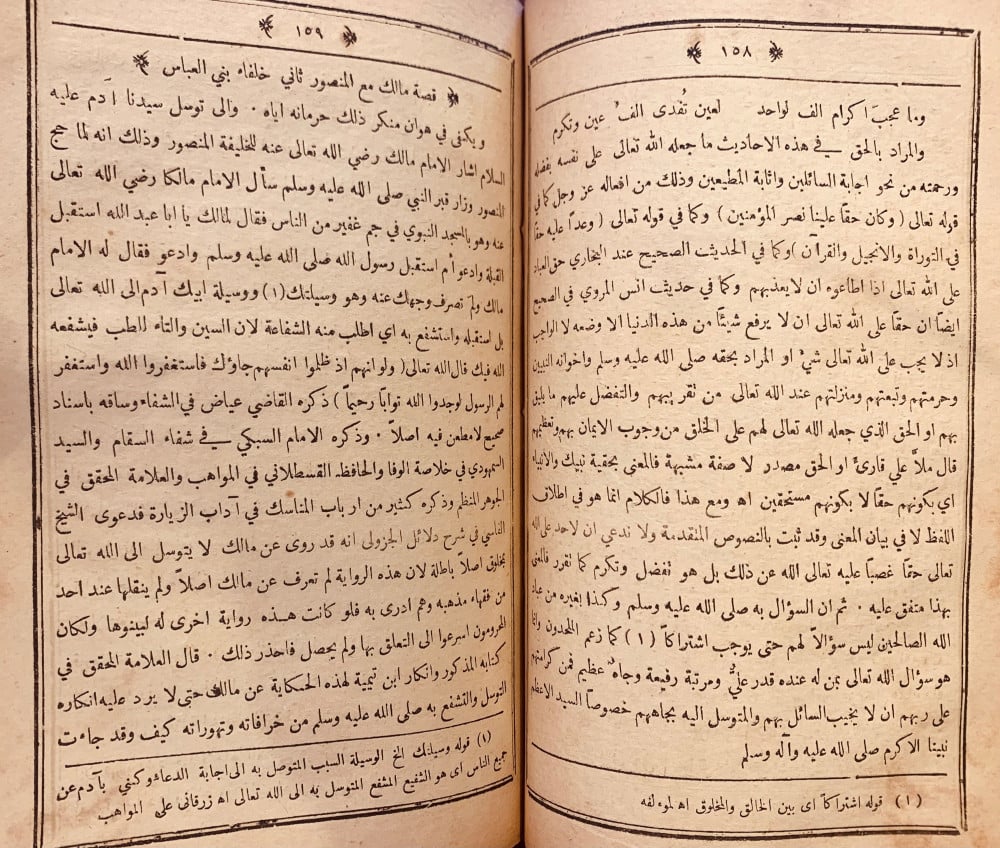 ١٥٨
وما عجب اكرام الف لواحد لعين تُفدى الفُ عين وتكرم
والمراد بالحق في هذه الاحاديث ما جعله الله تعالى على نفسه بفضله
ورحمته من نحو اجابة السائلين واثابة المطيعين وذلك من افعاله عز وجل كما في
قوله تعالى ( وكان حقاً علينا نصر المؤمنين ) وكما في قوله تعالى ( وعداً عليه حقا
في التوراة والانجيل والقرآن ) وكما في الحديث الصحيح عند البخاري حق العباد
على الله تعالى اذا اطاعوه ان لا يعذبهم وكما في حديث انس المروي في الصحيح
ايضاً ان حقا على الله تعالى ان لا يرفع شيئاً من هذه الدنيا الا وضعه لا الواجب
اذ لا يجب على الله تعالى شيء او المراد بحقه صلى الله عليه وسلم واخوانه النبيين
وحرمتهم وتبعتهم ومنزلتهم عند الله تعالى من تقريبهم والتفضل عليهم ما يليق
بهم او الحق الذي جعله الله تعالى لهم على الخلق من وجوب الايمان بهم وتعظيمهم
قال ملاّ علي قارئ او الحق مصدر لا صفة مشبهة فالمعنى بحقية نبيك والانبياء
اي بكونهم حقاً لا بكونهم مستحقين اه ومع هذا فالكلام انما هو في اطلاق
اللفظ لا في بيان المعنى وقد ثبت بالنصوص المتقدمة ولا ندعي ان لاحد على الله
تعالى حقاً غصبياً عليه تعالى الله عن ذلك بل هو تفضل وتكرم كما تقرر فالمعنى
بهذا متفق عليه ٠ ثم ان السؤال به صلى الله عليه وسلم وكذا بغيره من عباد
الله الصالحين ليس سؤالاً لهم حتى يوجب اشتراكاً (١) كما زعم الملحدون وانما
هو سؤال الله تعالى بمن له عنده قدر عليٌّ ومرتبة رفيعة وجاهٌ عظيم فمن كرامتهم
على ربهم ان لا يخيب السائل بهم والمتوسل اليه بجاههم خصوصاً السيد الاعظم
نبينا الاكرم صلى الله عليه وآله وسلم
(١) قوله اشتراكاً اي بين الخالق والمخلوق اه لمؤلفه
١٥٩
قصة مالك مع المنصور ثاني خلفاء بني العباس
ويكفى في هوان منكر ذلك حرمانه اياه ٠ والى توسل سيدنا آدم عليه
السلام اشار الامام مالك رضي الله تعالى عنه للخليفة المنصور وذلك انه لما حج
المنصور وزار قبر النبي صلى الله عليه وسلم سأل الامام مالكا رضي الله تعالى
عنه وهو بالمسجد النبوي في جم غفير من الناس فقال لمالك يا ابا عبد الله استقبل
القبلة وادعو أم استقبل رسول الله صلى الله عليه وسلم وادعو فقال له الامام
مالك ولمَ تصرف وجهك عنه وهو وسيلتك (١) ووسيلة ابيك آدم الى الله تعالى
بل استقبله واستشفع به اي اطلب منه الشفاعة لان السين والتاء للطلب فيشفعه
الله فيك قال الله تعالى ( ولو انهم اذ ظلموا انفسهم جاؤك فاستغفروا الله واستغفر
لهم الرسول لوجدوا الله تواباً رحيماً ) ذكره القاضي عياض في الشفاء وساقه باسناد
صحيح لا مطعن فيه اصلاً ٠ وذكره الامام السبكي في شفاء السقام والسيد
السمهودي في خلاصة الوفا والحافظ القسطلاني في المواهب والعلامة المحقق في
الجوهر المنظم وذكره كثير من ارباب المناسك في آداب الزيارة فدعوى الشيخ
الفاسي في شرح دلائل الجزولي انه قد روى عن مالك لا يتوسل الى الله تعالى
بمخلوق اصلاً باطلة لان هذه الرواية لم تعرف عن مالك اصلاً ولم ينقلها عند احد
من فقهاء مذهبه وهم ادرى به فلو كانت هذه رواية اخرى له لبينوها ولكان
المحرومون اسرعوا الى التعلق بها ولم يحصل فاحذر ذلك ٠ قال العلامة المحقق في
كتابه المذكور وانكار ابن تيمية لهذه الحكاية عن مالك حتى لا يرد عليه انكاره
التوسل والتشفع به صلى الله عليه وسلم من خرافاته وتهوراته كيف وقد جاءت
(١) قوله وسيلتك الخ الوسيلة السبب المتوصل به الى اجابة الدعاء وكني بآدم عن
جميع الناس اى هو الشفيع المشفع المتوسل به الى الله تعالى اه زرقاني على المواهب